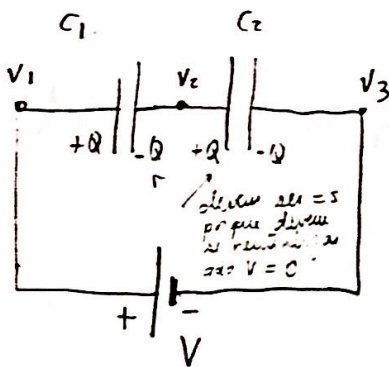 C1 C2
V1 V2 V3
+Q -Q +Q -Q
r
deven ser =s
porque deven
V = 0
+ -
V